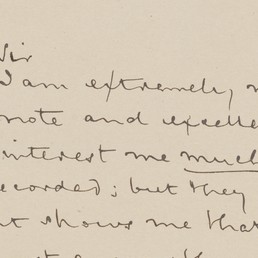 Sir
I am extremely
note and excelle
interest me much
ecorded); but they
t shows me that